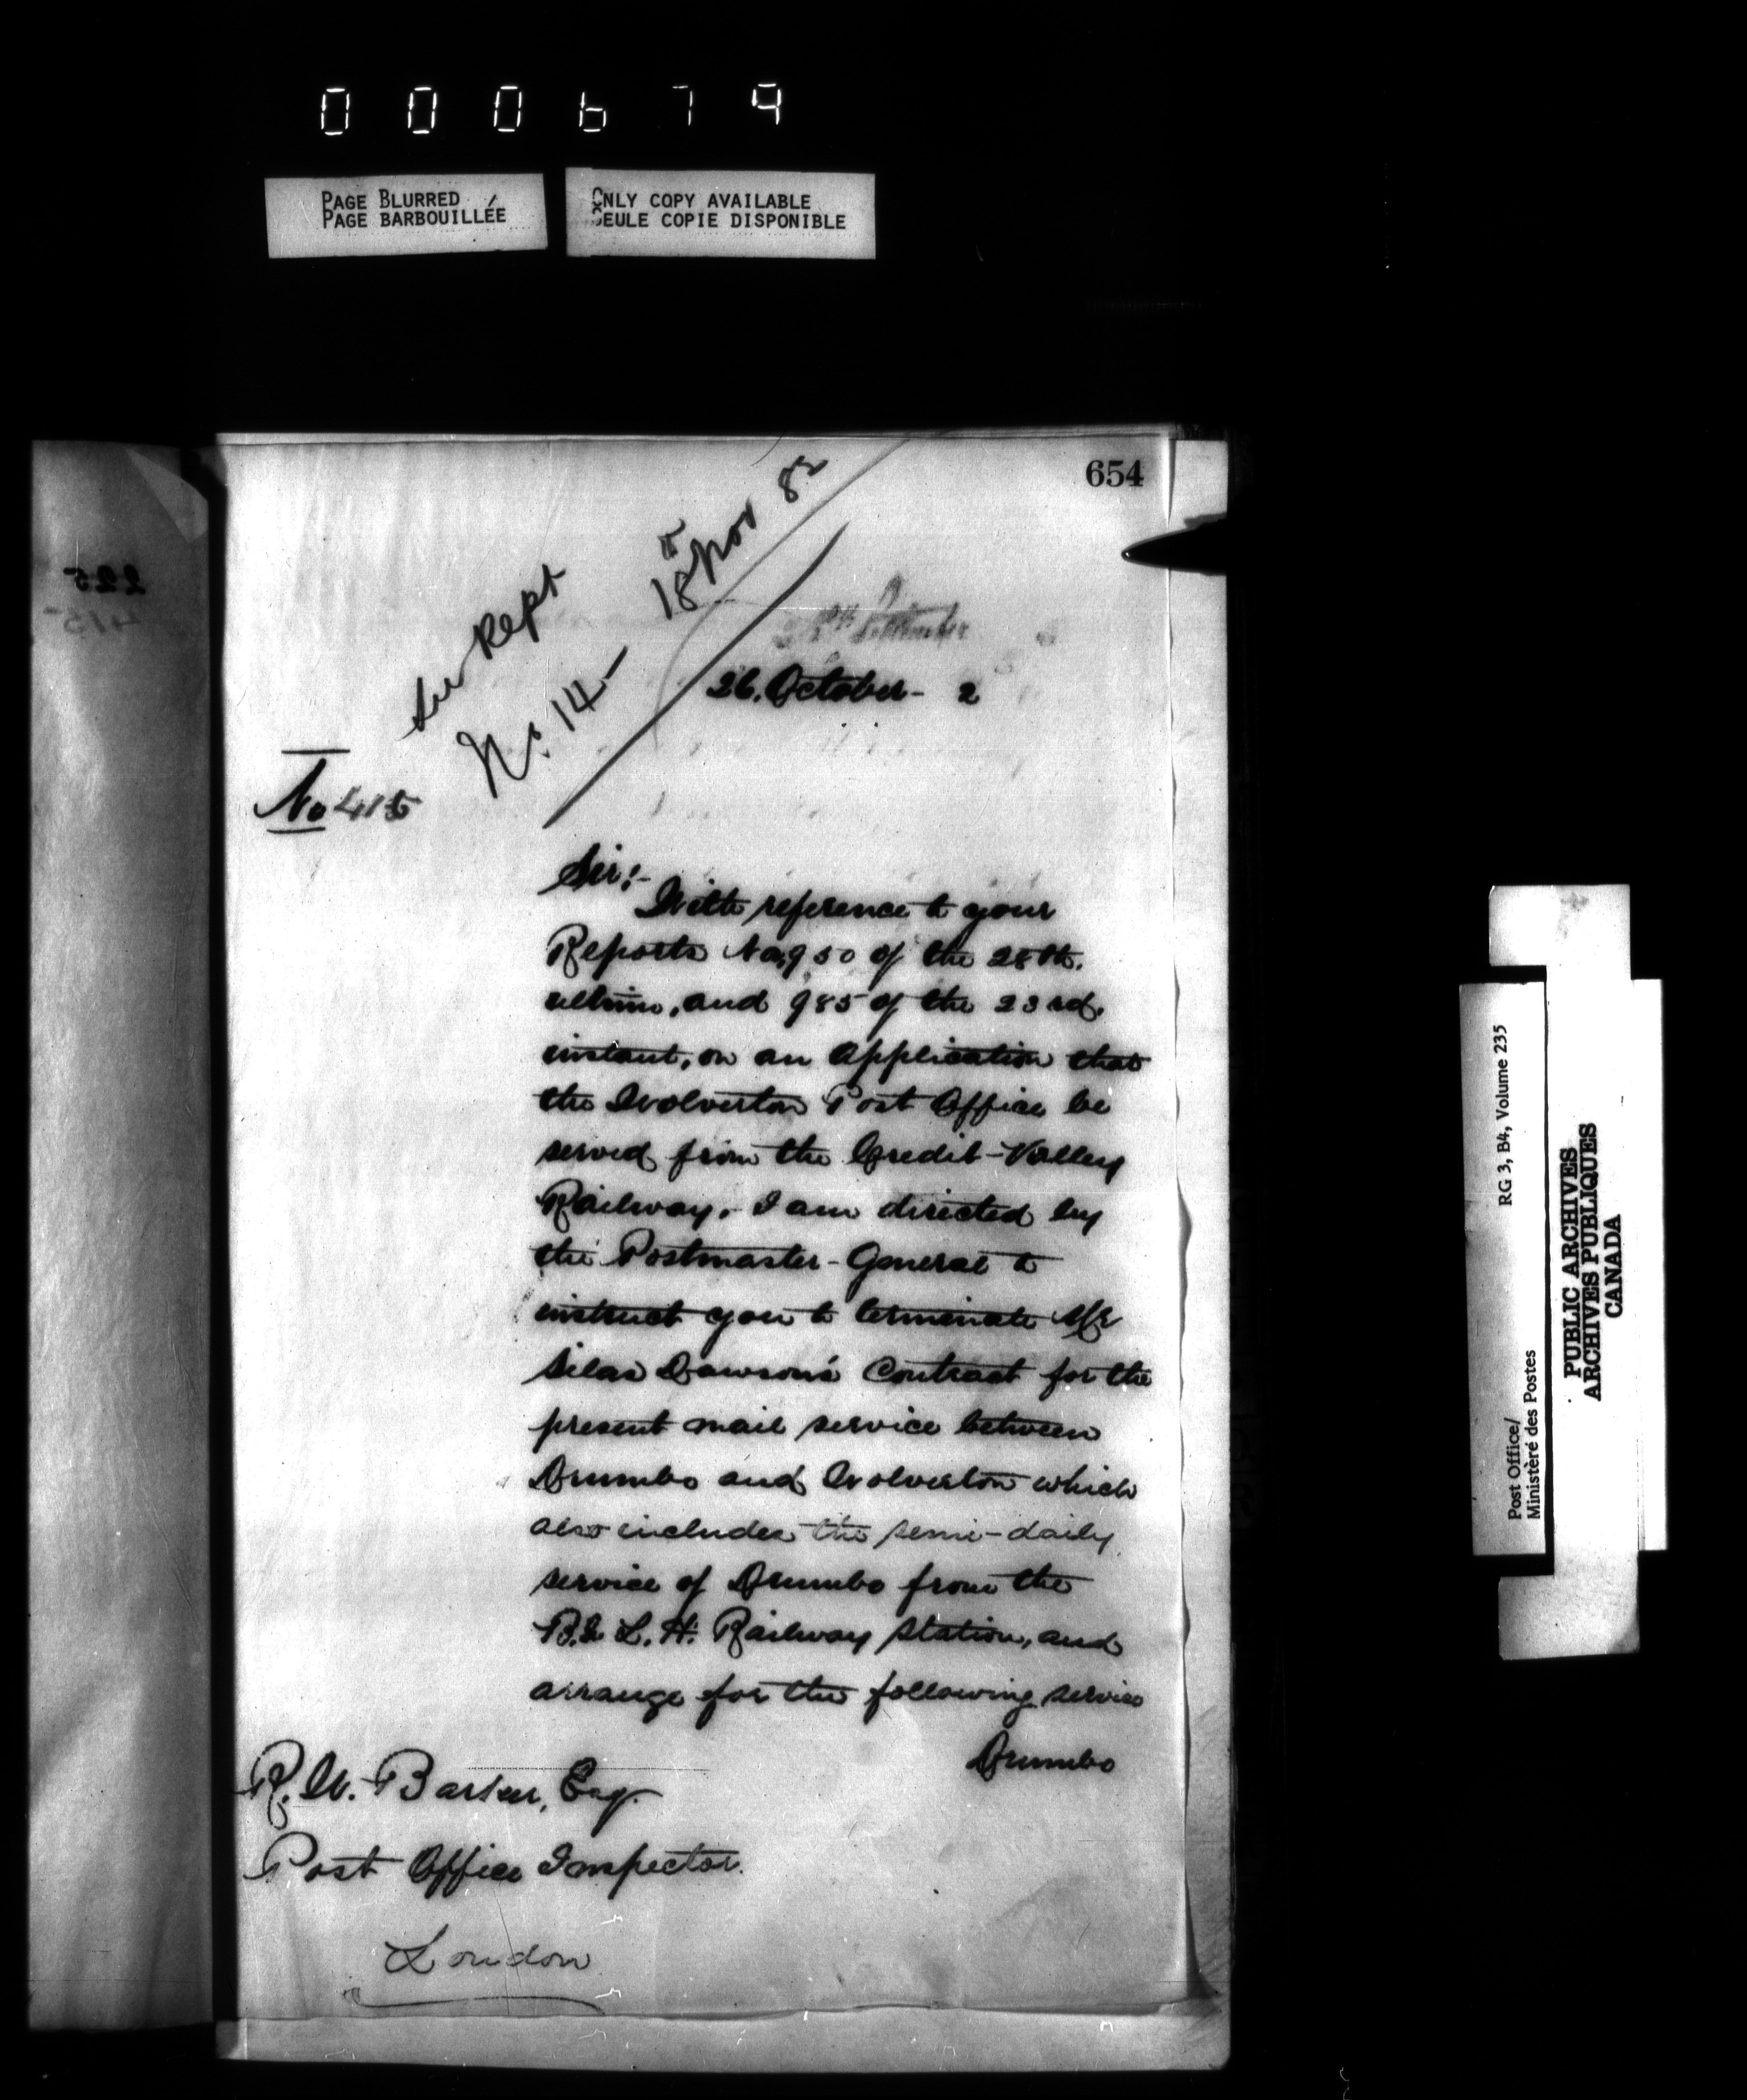 000679
PAGE BLURRED
PAGE BARBOUILLÉE
ONLY COPY AVAILABLE
SEULE COPIE DISPONIBLE
654
225
415
See Rept
No. 14 18th Nov 82
September
26. October - 2
No 415
Sir:-
With reference to your
Reports No. 950 of the 28th.
ultimo, and 985 of the 23rd.
instant, on an Application that
the Wolverton Post Office be
served from the Credit-Valley
Railway, I am directed by
the Postmaster-General to
instruct you to terminate Mr
Silas Dawson's Contract for the
present mail service between
Drumbo and Wolverton which
also includes the semi-daily
service of Drumbo from the
B. & L. H. Railway Station, and
arrange for the following service
Drumbo
R. W. Barker, Esq.
Post Office Inspector.
London
RG 3, B4, Volume 235
Post Office/
Ministère des Postes
PUBLIC ARCHIVES
ARCHIVES PUBLIQUES
CANADA